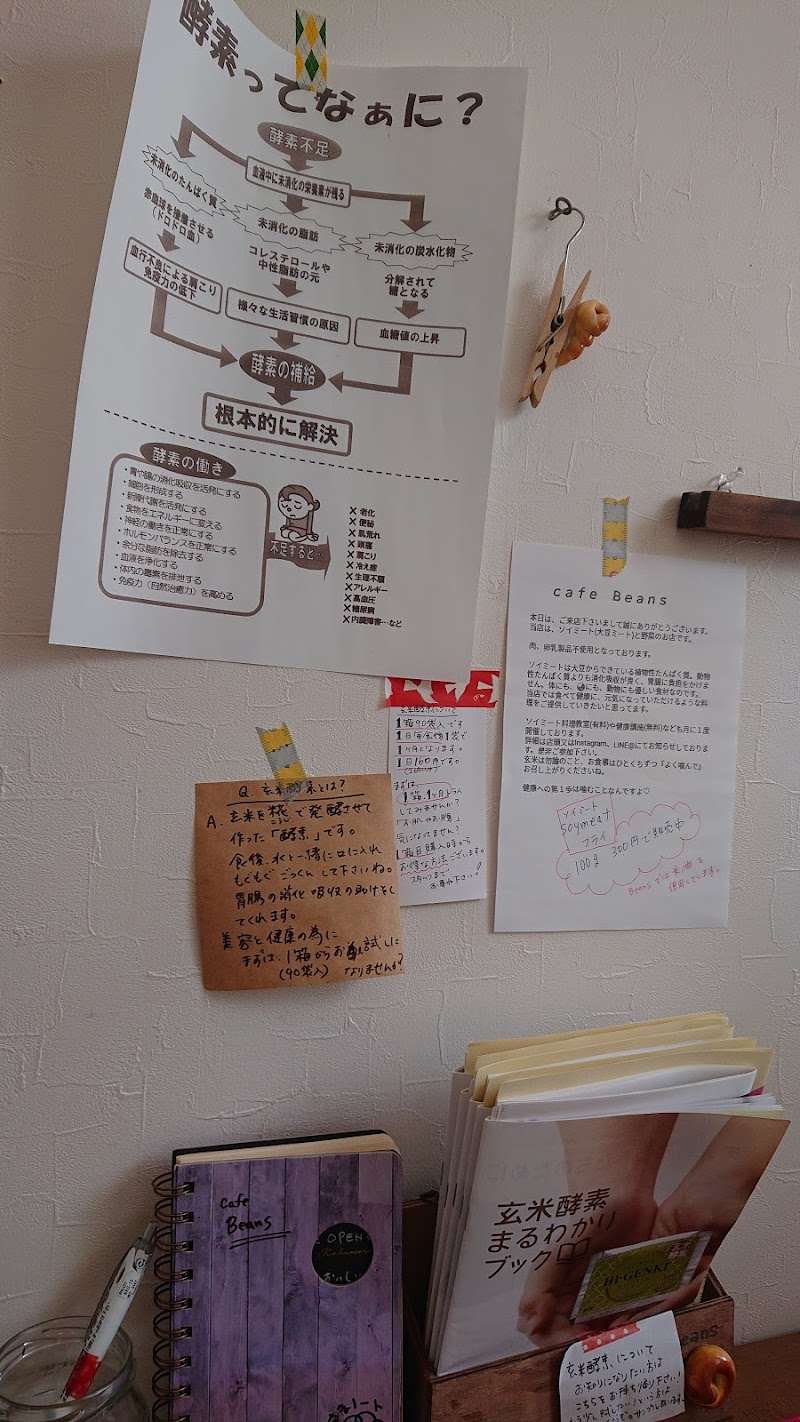 酵素ってなぁに？
酵素不足
血液中に未消化の栄養素が残る
未消化のたんぱく質
赤血球を接着させる
（ドロドロ血）
血行不良による肩こり
免疫力の低下
未消化の脂肪
コレステロールや
中性脂肪の元
様々な生活習慣の原因
未消化の炭水化物
分解されて
糖となる
血糖値の上昇
酵素の補給
根本的に解決
酵素の働き
・胃や腸の消化吸収を活発にする
・細胞を形成する
・新陳代謝を活発にする
・食物をエネルギーに変える
・神経の働きを正常にする
・ホルモンバランスを正常にする
・余分な脂肪を除去する
・血液を浄化する
・体内の毒素を排泄する
・免疫力（自然治癒力）を高める
不足すると…
✕ 老化
✕ 便秘
✕ 肌荒れ
✕ 頭痛
✕ 肩こり
✕ 冷え症
✕ 生理不順
✕ アレルギー
✕ 高血圧
✕ 糖尿病
✕ 内臓障害…など
cafe Beans
本日は、ご来店下さいまして誠にありがとうございます。
当店は、ソイミート(大豆ミート)と野菜のお店です。
肉、卵乳製品不使用となっております。
ソイミートは大豆からできている植物性たんぱく質。動物
性たんぱく質よりも消化吸収が良く、胃腸に負担をかけま
せん。体にも、にも、動物にも優しい食材なのです。
当店では食べて健康に、元気になっていただけるような料
理をご提供していきたいと思ってます。
ソイミート料理教室(有料)や健康講座(無料)なども月に１度
開催しております。
詳細は店頭又はInstagram、LINE@にてお知らせしておりま
す。是非ご参加下さい。
玄米は勿論のこと、お食事はひとくちずつ『よく噛んで』
お召し上がりくださいね。
健康への第１歩は噛むことなんですよ♡
ソイミート
soymeat
フライ
100g 300円で販売中
Beansでは米油を
使用しています。
1箱90袋入です
1日毎食後1袋で
1ヶ月となります。
1日160円です。
まずは
1箱、1ヶ月
してみませんか？
「お肌やお腸」
気になってません？
1箱目購入時から
お得な方法ございます。
スタッフまで
お尋ね下さい！
Q 玄米酵素とは？
A. 玄米を糀で発酵させて
こうじ
作った「酵素」です。
食後、水と一緒に口に入れ
もぐもぐごっくんして下さいね。
胃腸の消化吸収の助けをし
てくれます。
美容と健康の為に
まずは、1箱からお試しに
(90袋入) なりませんか？
Cafe
Beans
OPEN
おいしい
玄米酵素
まるわかり
ブック
HI-GENKI
玄米酵素について
お知りになりたい方は
こちらをお持ち帰り下さい！